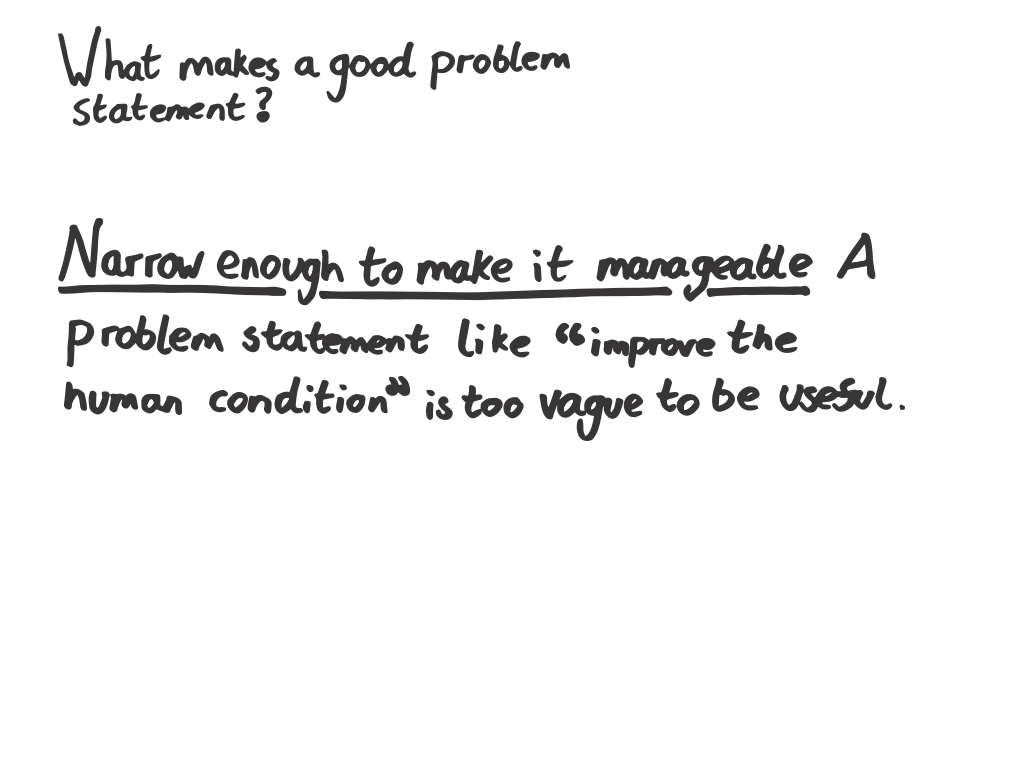 What makes a good problem
statement?
Narrow enough to make it manageable A
problem statement like “improve the
human condition” is too vague to be useful.